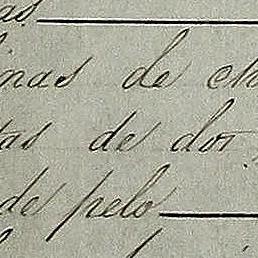 as
inas de ch
tas de dor
de pelo